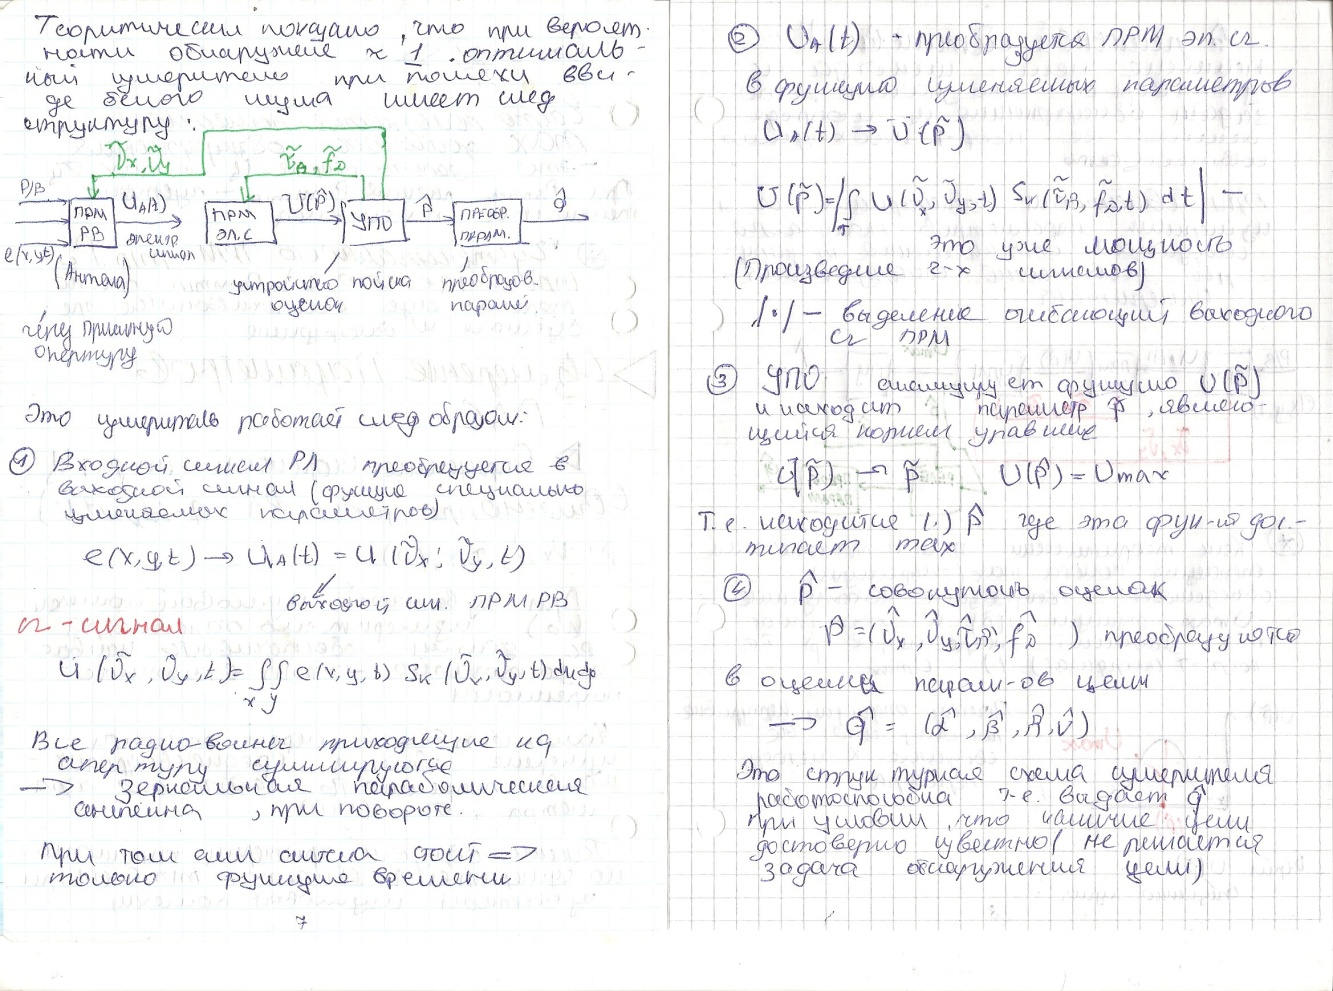 Теоритически показано, что при вероят-
ности обнаружение ≈ 1 оптималь-
ный измеритель при помехи в ви-
де белого шума имеет след
структуру:
ṽx, ṽy
τ̃в, f̃д
Р/В
ПРМ РВ
UA(t)
электр сигнал
ПРМ ЭЛ.С
U(p̃)
УПО
p̂
ПРЕОБР. ПАРАМ.
q̂
e(x,y,t)
(Антена)
устройство поиска оценок
преобразов. парам
через приемную
апертуру
Это измеритель работает след образом:
① Входной сигнал РЛ преобразуется в
выходной сигнал (функцию специально
изменяемых параметров)
e(x,y,t) → UA(t) = U(ṽx; ṽy, t)
выходной сиг. ПРМ РВ
сг - сигнал
U(ṽx, ṽy, t) = ∫∫ e(x,y,t) Sк(ṽx, ṽy, t) dxdy
x y
Все радио-волны приходящие на
апертуру суммируются
→ зеркальная параболическая
антенна, при повороте.
При том если антена стоит ⇒
только функция времени
7
② UA(t) - преобразуется ПРМ эл. сг.
в функцию изменяемых параметров
UA(t) → U(p̃)
U(p̃) = |∫ U(ṽx, ṽy, t) Sк(τ̃в, f̃д, t) dt| —
T
это уже мощность
(Произведние 2-х сигналов)
|•| — выделение огибающий выходного
сг ПРМ
③ УПО анализирует функцию U(p̃)
и находит параметр p̂, являю-
щийся корнем уравнение
U(p̃) → p̃ U(p̂) = Umax
Т.е. находится (.) p̂ где эта функ-ия дос-
тигает max
④ p̂ - совокупность оценок
p̂ = (v̂x, v̂y, τ̂в, f̂д) преобразуются
в оценки парам-ов цели
→ q̂ = (α̂, β̂, R̂, V̂)
Это структурная схема измерителя
работоспособна т.е. выдает q̂
при условии, что наличие цели
достоверно известно (не решается
задача обнаружения цели)